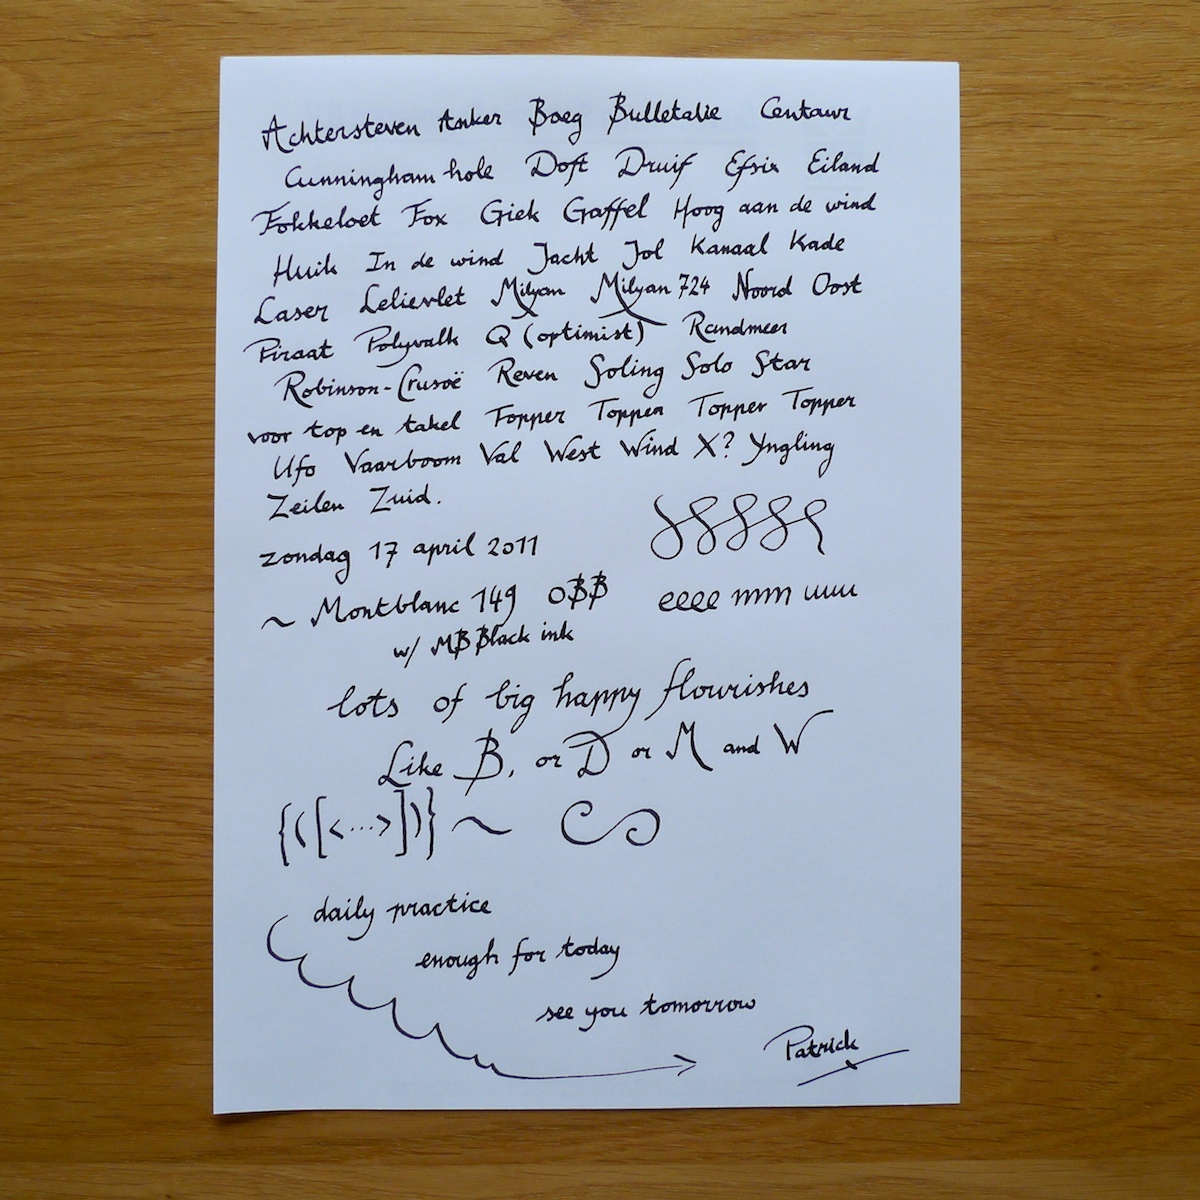 Achtersteven Anker Boeg Bulletalie Centaur
Cunningham hole Doft Druif Efsix Eiland
Fokkeloet Fox Giek Gaffel Hoog aan de wind
Huik In de wind Jacht Jol Kanaal Kade
Laser Lelievlet Milyan Milyan 724 Noord Oost
Piraat Polyvalk Q (optimist) Randmeer
Robinson-Crusoë Reven Soling Solo Star
voor top en takel Fopper Toppen Topper Topper
Ufo Vaarboom Val West Wind X? Yngling
Zeilen Zuid.
zondag 17 april 2011
~ Montblanc 149 OBB eeee mmm uuuu
w/ MB Black ink
lots of big happy flourishes
Like B, or D or M and W
{([<...>])} ~
daily practice
enough for today
see you tomorrow
Patrick